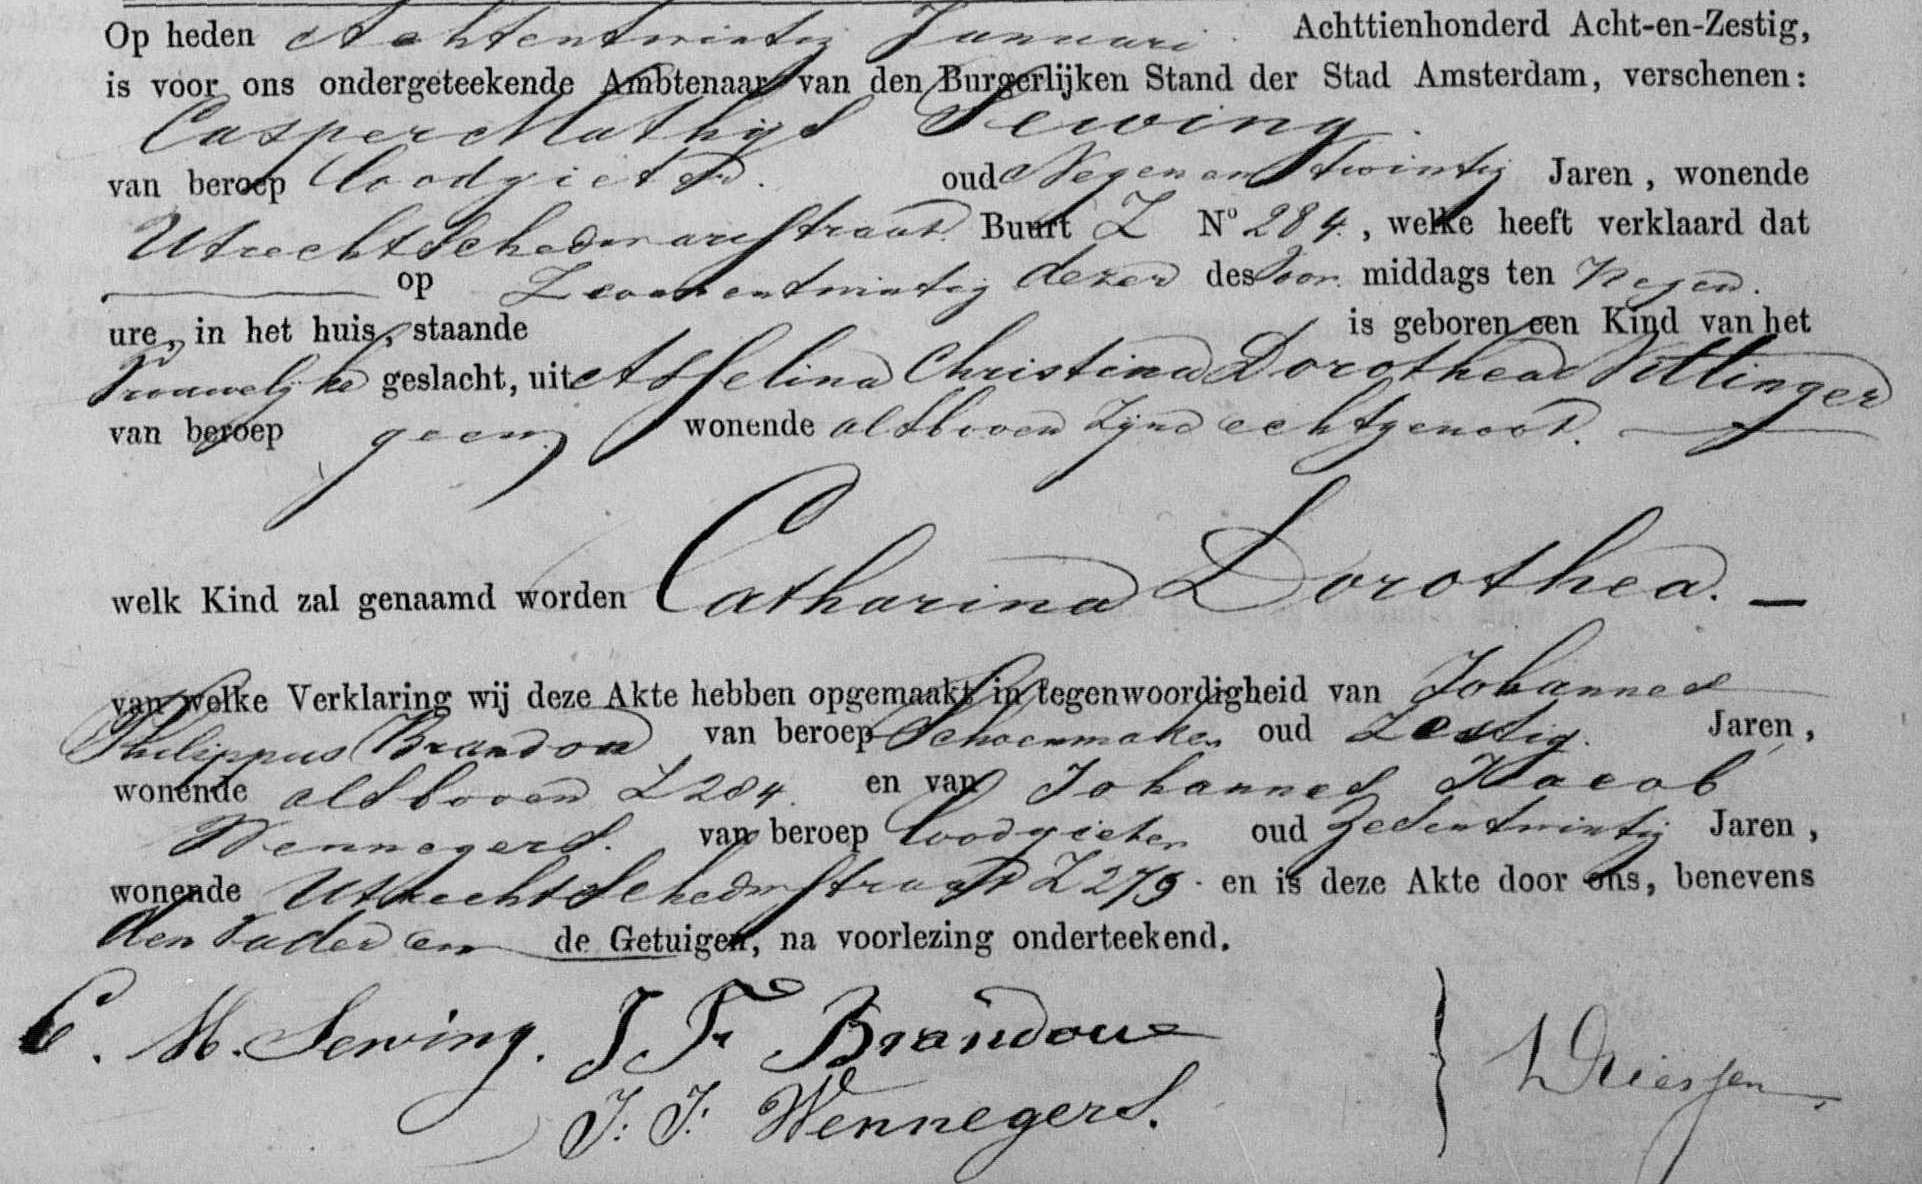 Op heden Achtentwintig Januari Achttienhonderd Acht-en-Zestig,
is voor ons ondergeteekende Ambtenaar van den Burgerlijken Stand der Stad Amsterdam, verschenen:
Casper Mathijs Sewing.
van beroep loodgieter. oud Negenentwintig Jaren, wonende
Utrechtschedwarsstraat Buurt Z No 284., welke heeft verklaard dat
op Zevenentwintig dezer des voor middags ten Negen.
ure, in het huis, staande is geboren een Kind van het
Vrouwelijke geslacht, uit Asselina Christina Dorothea Vittinger
van beroep geen wonende alsboven zijne echtgenoot.
welk Kind zal genaamd worden Catharina Dorothea. —
van welke Verklaring wij deze Akte hebben opgemaakt in tegenwoordigheid van Johannes
Philippus Brandon van beroep Schoenmaker oud Zestig. Jaren,
wonende alsboven Z 284. en van Johannes Jacob
Wennegers. van beroep loodgieter oud Zesentwintig Jaren,
wonende Utrechtschedwstraat Z 279. en is deze Akte door ons, benevens
den Vader en de Getuigen, na voorlezing onderteekend.
C. M. Sewing. J F Brandon
J: J: Wennegers. Driessen